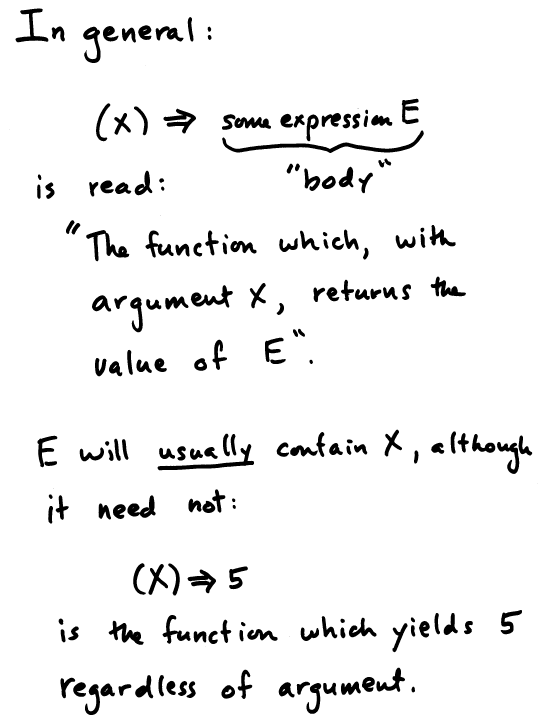 In general:
(X) ⇒ some expression E
"body"
is read:
"The function which, with
argument X, returns the
value of E".
E will usually contain X, although
it need not:
(X) ⇒ 5
is the function which yields 5
regardless of argument.